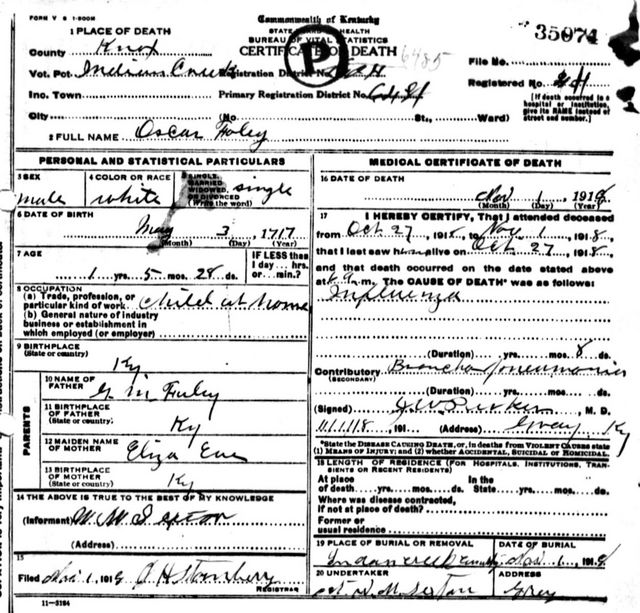 FORM V S 1-600M
Commonwealth of Kentucky
STATE HEALTH
BUREAU OF VITAL STATISTICS
CERTIFICATE OF DEATH
P
6485
35074
1 PLACE OF DEATH
County Knox
Vot. Pot. Indian Creek
Registration District No.
File No.
Inc. Town
Primary Registration District No. 6481
Registered No.
[If death occurred in a hospital or institution, give its NAME instead of street and number.]
City (No. St., Ward)
2 FULL NAME Oscar Foley
PERSONAL AND STATISTICAL PARTICULARS
3 SEX
male
4 COLOR OR RACE
white
5 SINGLE, MARRIED, WIDOWED, OR DIVORCED (Write the word)
single
6 DATE OF BIRTH
May 3, 1917
(Month) (Day) (Year)
7 AGE
1 yrs. 5 mos. 28 ds.
IF LESS than 1 day... hrs. or... min.?
8 OCCUPATION
(a) Trade, profession, or particular kind of work. Child at Home
(b) General nature of industry business or establishment in which employed (or employer)
9 BIRTHPLACE
(State or country)
Ky
PARENTS
10 NAME OF FATHER
G M Foley
11 BIRTHPLACE OF FATHER
(State or country)
Ky
12 MAIDEN NAME OF MOTHER
Eliza
13 BIRTHPLACE OF MOTHER
(State or country)
Ky
14 THE ABOVE IS TRUE TO THE BEST OF MY KNOWLEDGE
(Informant) W. M. Sexton
(Address)
15
Filed Nov 1, 1918
REGISTRAR
11-3184
MEDICAL CERTIFICATE OF DEATH
16 DATE OF DEATH
Nov 1, 1918
(Month) (Day) (Year)
17 I HEREBY CERTIFY, That I attended deceased
from Oct 27, 1918, to Nov 1, 1918,
that I last saw him alive on Oct 27, 1918,
and that death occurred on the date stated above
at m. The CAUSE OF DEATH* was as follows:
Influenza
(Duration) yrs. mos. 8 ds.
Contributory Broncho pneumonia
(SECONDARY)
(Duration) yrs. mos. ds.
(Signed) M. D.
11/1/1918 (Address) Gray Ky
*State the DISEASE CAUSING DEATH, or, in deaths from VIOLENT CAUSES state (1) MEANS OF INJURY; and (2) whether ACCIDENTAL, SUICIDAL or HOMICIDAL.
18 LENGTH OF RESIDENCE (FOR HOSPITALS, INSTITUTIONS, TRANSIENTS OR RECENT RESIDENTS)
At place of death yrs. mos. ds.
In the State yrs. mos. ds.
Where was disease contracted, if not at place of death?
Former or usual residence
19 PLACE OF BURIAL OR REMOVAL
Indian creek
DATE OF BURIAL
Nov 1, 1918
20 UNDERTAKER
M. Sexton
ADDRESS
Grey